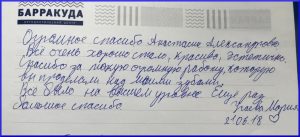 БАРРАКУДА
Огромное спасибо Анастасие Александровне
Все очень хорошо стало, красиво, эстетично.
Спасибо за такую огромную работу, которую
вы проделали над моими зубами.
Все было на высшем уровне. Еще раз
большое спасибо
Мария
21.06.18